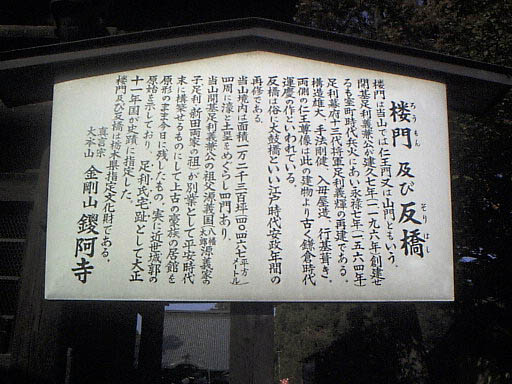 楼門 及び 反橋
ろうもん
そりはし
楼門は当山では仁王門又は山門ともいう。
開基足利義兼公が建久七年(一一九六年)創建せ
るも室町時代兵火にあい永禄七年(一五六四年)
足利幕府十三代将軍足利義輝の再建である。
構造雄大、手法剛健、入母屋造、行基葺き。
両側の仁王尊像は此の建物より古く鎌倉時代
運慶の作といわれている。
反橋は俗に太鼓橋といい江戸時代安政年間の
再修である。
当山境内は面積一万二千三百坪(四〇四六七平方メートル)
四周に濠と土塁をめぐらし四門あり、
当山開基足利義兼公の祖父源義国(八幡太郎源義家の
子足利、新田両家の祖)が別業として平安時代
末に構築せるものにして上古の豪族の居館を
原形のまま今日に残したもの、実に近世城郭の
原始を示しており、足利氏宅趾として大正
十一年国が史蹟に指定した。
楼門及び反橋は栃木県指定文化財である。
真言宗
大本山 金剛山 鑁阿寺